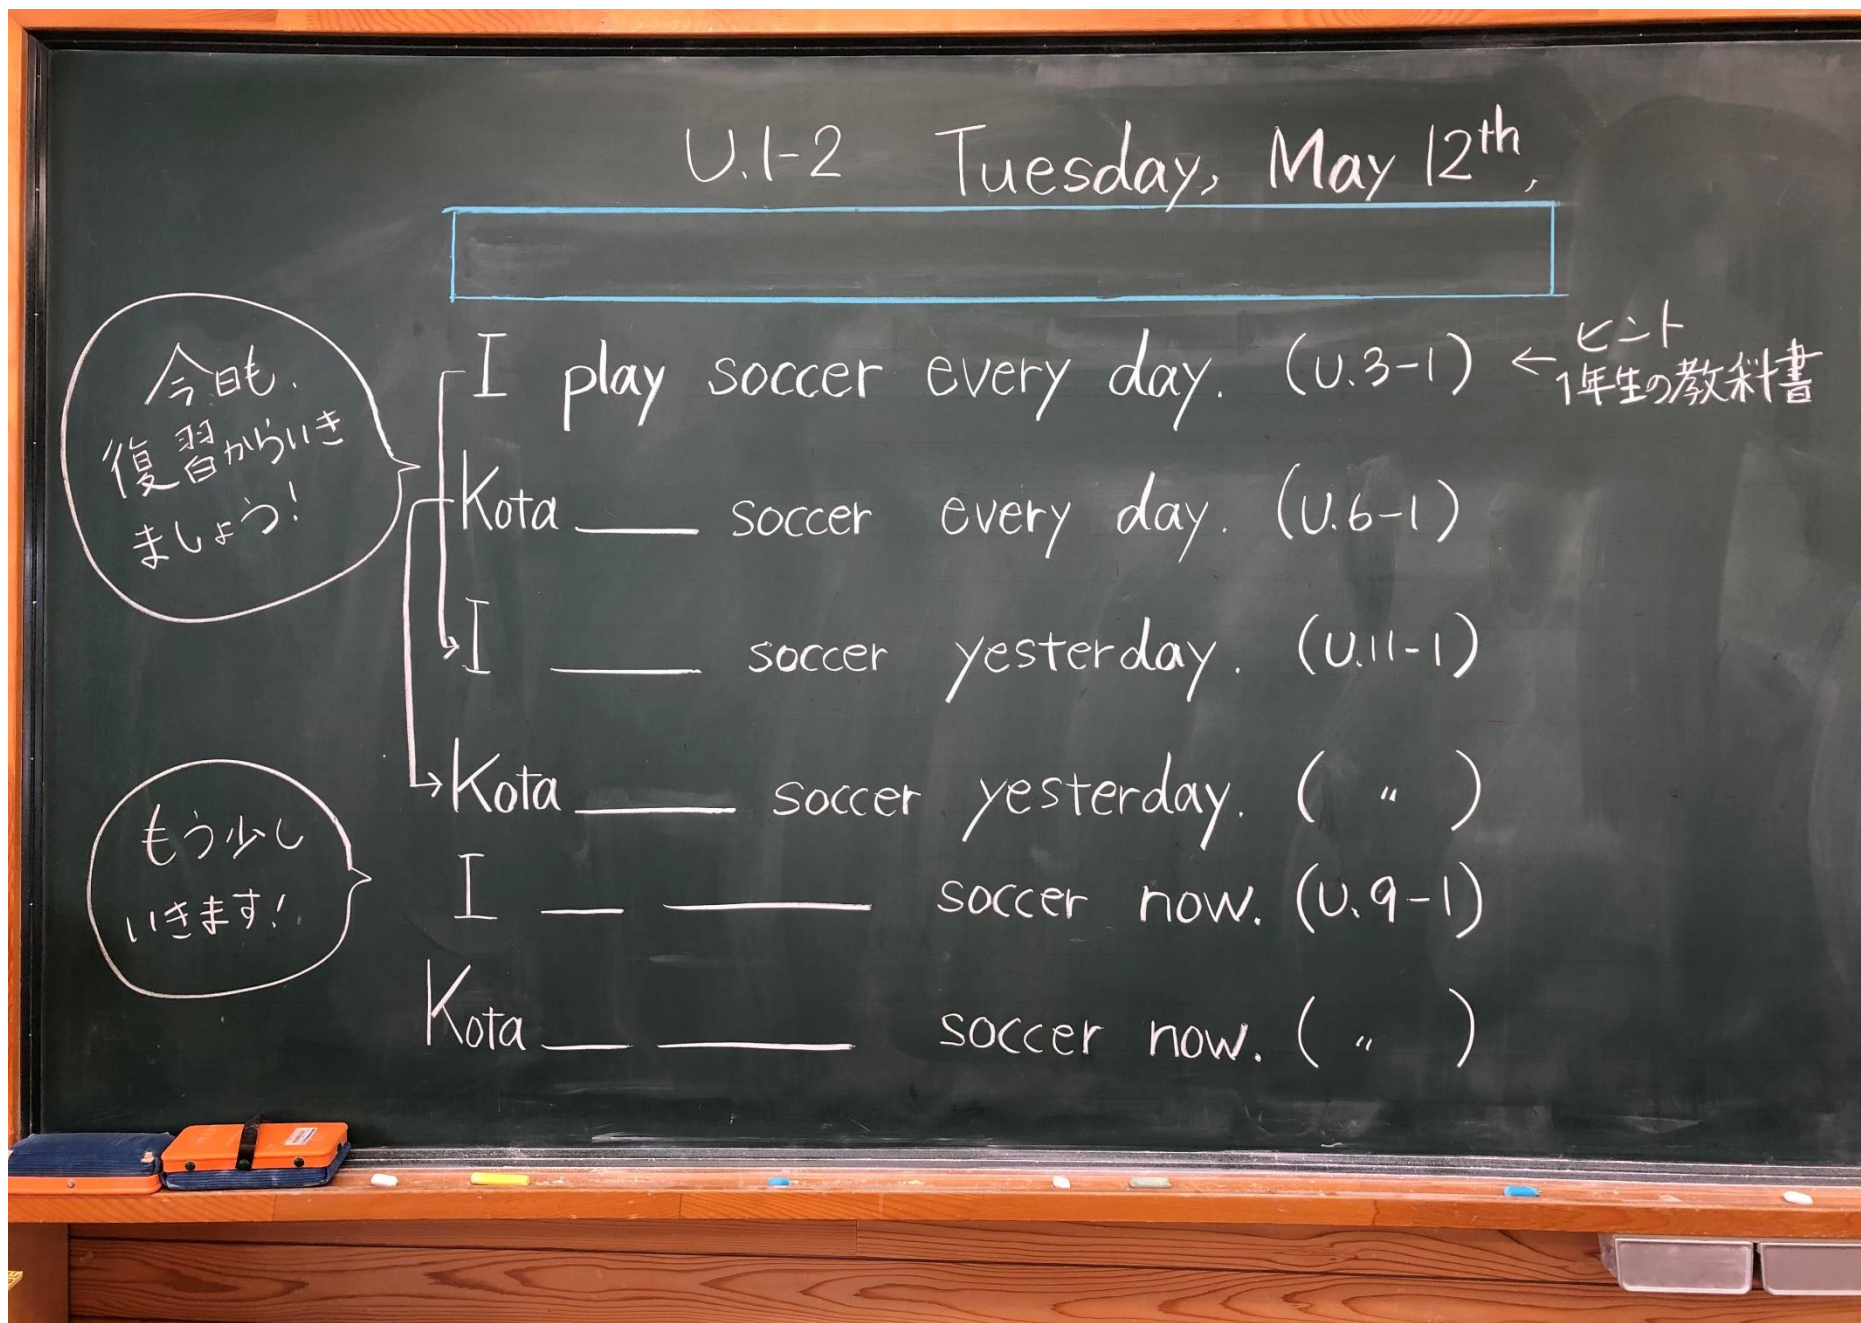 U.1-2 Tuesday, May 12th,
I play soccer every day. (U.3-1) ← ヒント
1年生の教科書
今日も、
復習からいき
ましょう!
Kota ___ soccer every day. (U.6-1)
I ___ soccer yesterday. (U.11-1)
Kota ___ soccer yesterday. ( 〃 )
もう少し
いきます!
I __ ____ soccer now. (U.9-1)
Kota __ ____ soccer now. ( 〃 )